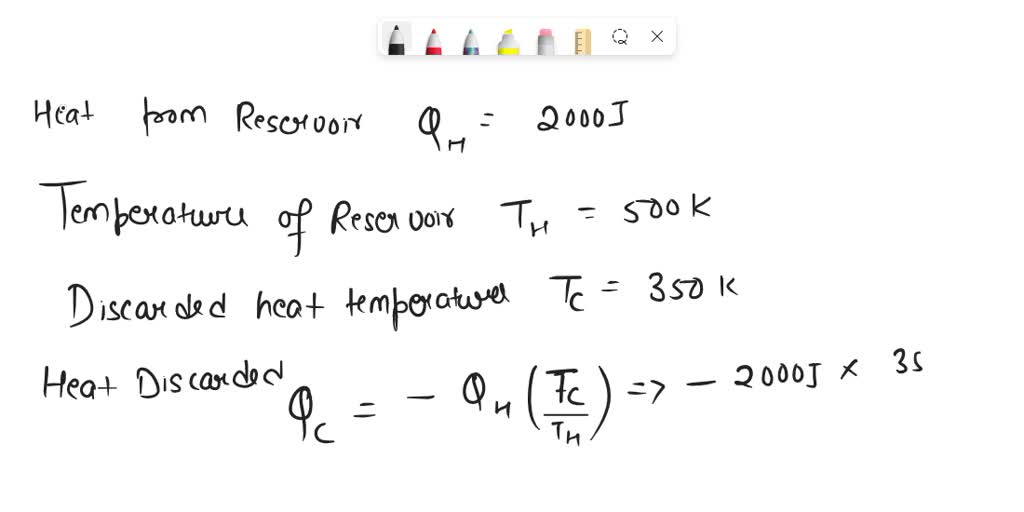 Heat from Reservoir Q_H = 2000J
Temperature of Reservoir T_H = 500K
Discarded heat temperature T_C = 350 K
Heat Discarded Q_C = - Q_H (T_C/T_H) => - 2000J × 35